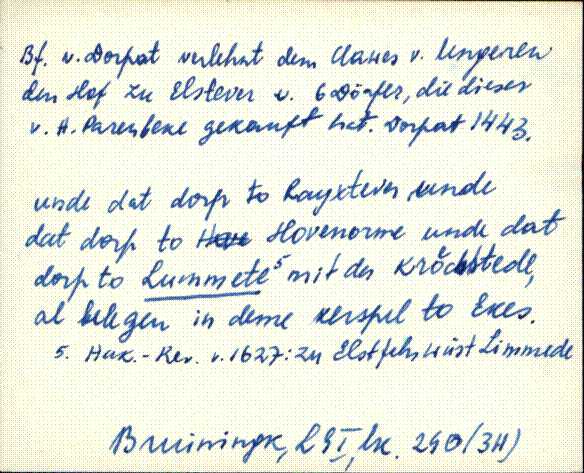 Bf. v. Dorpat verlehnt dem Clawes v. Ungeren
den Hof zu Elstever u. 6 Dörfer, die dieser
v. H. Parenbeke gekauft hat. Dorpat 1443.
unde dat dorp to Rayxtever, unde
dat dorp to Hovenorme unde dat
dorp to Lummete⁵ mit der kröchstede,
al belegen in deme kerspel to Ekes.
5. Hak.-Rev. v. 1627: zu Elstfehr wüst Limmede
Bruiningk, LGI, lk. 290 (34)